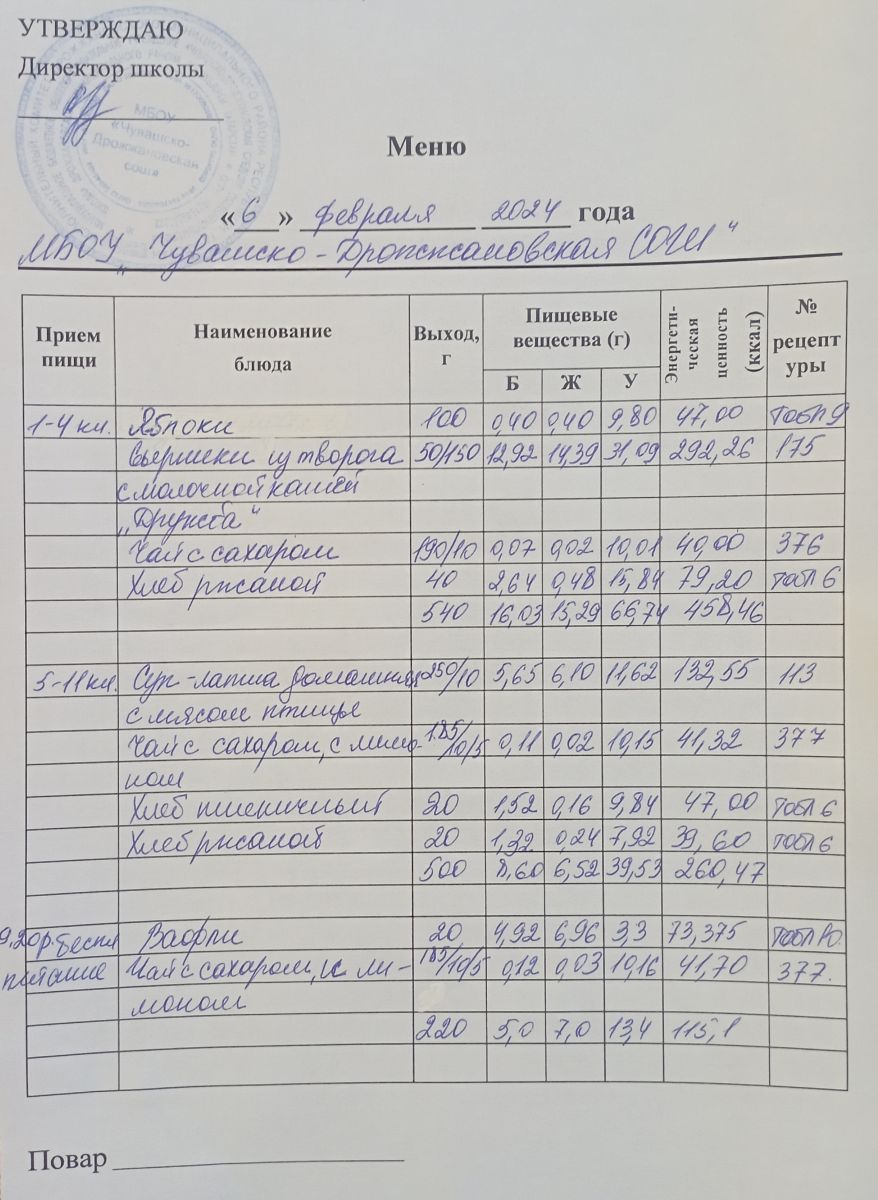 УТВЕРЖДАЮ
Директор школы
МБОУ
«Чувашско-
Дрожжановская
сош»
Меню
«6» февраля 2024 года
МБОУ „Чувашско-Дрожжановская СОШ"
Прием пищи Наименование блюда Выход, г Пищевые вещества (г) Б Ж У Энергети-ческая ценность (ккал) № рецепт уры
1-4 кл. Яблоки 100 0,40 0,40 9,80 47,00 табл 9
Сырники из творога 50/150 12,92 14,39 31,09 292,26 175
с молочной кашей
„Дружба"
Чай с сахаром 190/10 0,07 0,02 10,01 40,00 376
Хлеб ржаной 40 2,64 0,48 15,84 79,20 табл 6
540 16,03 15,29 66,74 458,46
5-11 кл. Суп-лапша домашняя 250/10 5,65 6,10 11,62 132,55 113
с мясом птицы
Чай с сахаром, с лимо- 185/10/5 0,11 0,02 10,15 41,32 377
ном
Хлеб пшеничный 20 1,52 0,16 9,84 47,00 табл 6
Хлеб ржаной 20 1,32 0,24 7,92 39,60 табл 6
500 8,60 6,52 39,53 260,47
Вафли 20 4,92 6,96 3,3 73,375
питание Чай с сахаром, с ли- 185/10/5 0,12 0,03 10,16 41,70 377.
моном
220 5,0 7,0 13,4 115,1
Повар